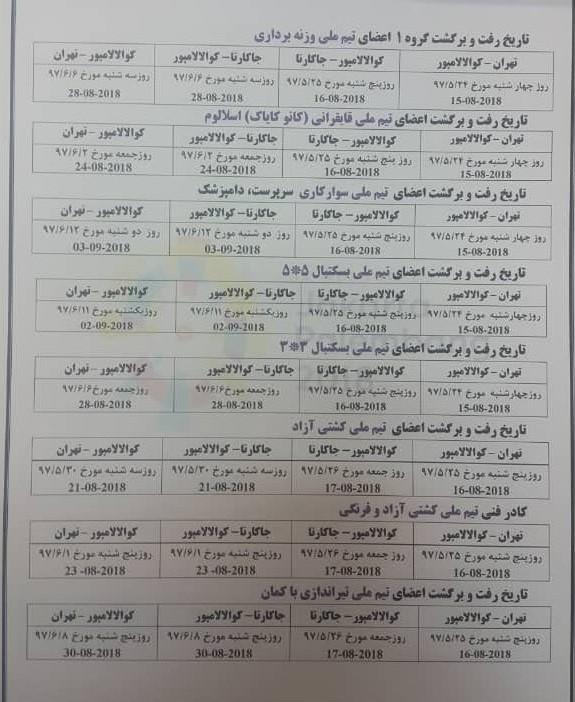 تاریخ رفت و برگشت گروه ۱ اعضای تیم ملی وزنه برداری
تهران – کوالالامپور کوالالامپور – جاکارتا جاکارتا – کوالالامپور کوالالامپور – تهران
روز چهار شنبه مورخ ۹۷/۵/۲۴ روزپنج شنبه مورخ ۹۷/۵/۲۵ روزسه شنبه مورخ ۹۷/۶/۶ روزسه شنبه مورخ ۹۷/۶/۶
15-08-2018 16-08-2018 28-08-2018 28-08-2018
تاریخ رفت و برگشت اعضای تیم ملی قایقرانی (کانو کایاک) اسلالوم
تهران – کوالالامپور کوالالامپور – جاکارتا جاکارتا – کوالالامپور کوالالامپور – تهران
روز چهار شنبه مورخ ۹۷/۵/۲۴ روز پنج شنبه مورخ ۹۷/۵/۲۵ روزجمعه مورخ ۹۷/۶/۲ روزجمعه مورخ ۹۷/۶/۲
15-08-2018 16-08-2018 24-08-2018 24-08-2018
تاریخ رفت و برگشت اعضای تیم ملی سوارکاری سرپرست، دامپزشک
تهران – کوالالامپور کوالالامپور – جاکارتا جاکارتا – کوالالامپور کوالالامپور – تهران
روز چهار شنبه مورخ ۹۷/۵/۲۴ روزپنج شنبه مورخ ۹۷/۵/۲۵ روز دو شنبه مورخ ۹۷/۶/۱۲ روز دو شنبه مورخ ۹۷/۶/۱۲
15-08-2018 16-08-2018 03-09-2018 03-09-2018
تاریخ رفت و برگشت اعضای تیم ملی بسکتبال ۵*۵
تهران – کوالالامپور کوالالامپور – جاکارتا جاکارتا – کوالالامپور کوالالامپور – تهران
روزچهارشنبه مورخ ۹۷/۵/۲۴ روزپنج شنبه مورخ ۹۷/۵/۲۵ روزیکشنبه مورخ ۹۷/۶/۱۱ روزیکشنبه مورخ ۹۷/۶/۱۱
15-08-2018 16-08-2018 02-09-2018 02-09-2018
تاریخ رفت و برگشت اعضای تیم ملی بسکتبال ۳*۳
تهران – کوالالامپور کوالالامپور – جاکارتا جاکارتا – کوالالامپور کوالالامپور – تهران
روزچهارشنبه مورخ ۹۷/۵/۲۴ روزپنج شنبه مورخ ۹۷/۵/۲۵ روزجمعه مورخ ۹۷/۶/۶ روزجمعه مورخ ۹۷/۶/۶
15-08-2018 16-08-2018 28-08-2018 28-08-2018
تاریخ رفت و برگشت اعضای تیم ملی کشتی آزاد
تهران – کوالالامپور کوالالامپور – جاکارتا جاکارتا – کوالالامپور کوالالامپور – تهران
روزپنج شنبه مورخ ۹۷/۵/۲۵ روز جمعه مورخ ۹۷/۵/۲۶ روزسه شنبه مورخ ۹۷/۵/۳۰ روزسه شنبه مورخ ۹۷/۵/۳۰
16-08-2018 17-08-2018 21-08-2018 21-08-2018
کادر فنی تیم ملی کشتی آزاد و فرنگی
تهران – کوالالامپور کوالالامپور – جاکارتا جاکارتا – کوالالامپور کوالالامپور – تهران
روزپنج شنبه مورخ ۹۷/۵/۲۵ روز جمعه مورخ ۹۷/۵/۲۶ روزپنج شنبه مورخ ۹۷/۶/۱ روزپنج شنبه مورخ ۹۷/۶/۱
16-08-2018 17-08-2018 23 -08-2018 23 -08-2018
تاریخ رفت و برگشت اعضای تیم ملی تیراندازی با کمان
تهران – کوالالامپور کوالالامپور – جاکارتا جاکارتا – کوالالامپور کوالالامپور – تهران
روزپنج شنبه مورخ ۹۷/۵/۲۵ روزجمعه مورخ ۹۷/۵/۲۶ روزپنج شنبه مورخ ۹۷/۶/۸ روزپنج شنبه مورخ ۹۷/۶/۸
16-08-2018 17-08-2018 30-08-2018 30-08-2018